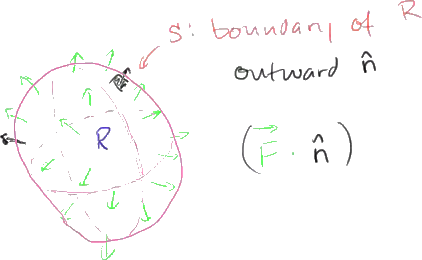 S: boundary of R
outward n̂
R
(F⃗ · n̂)